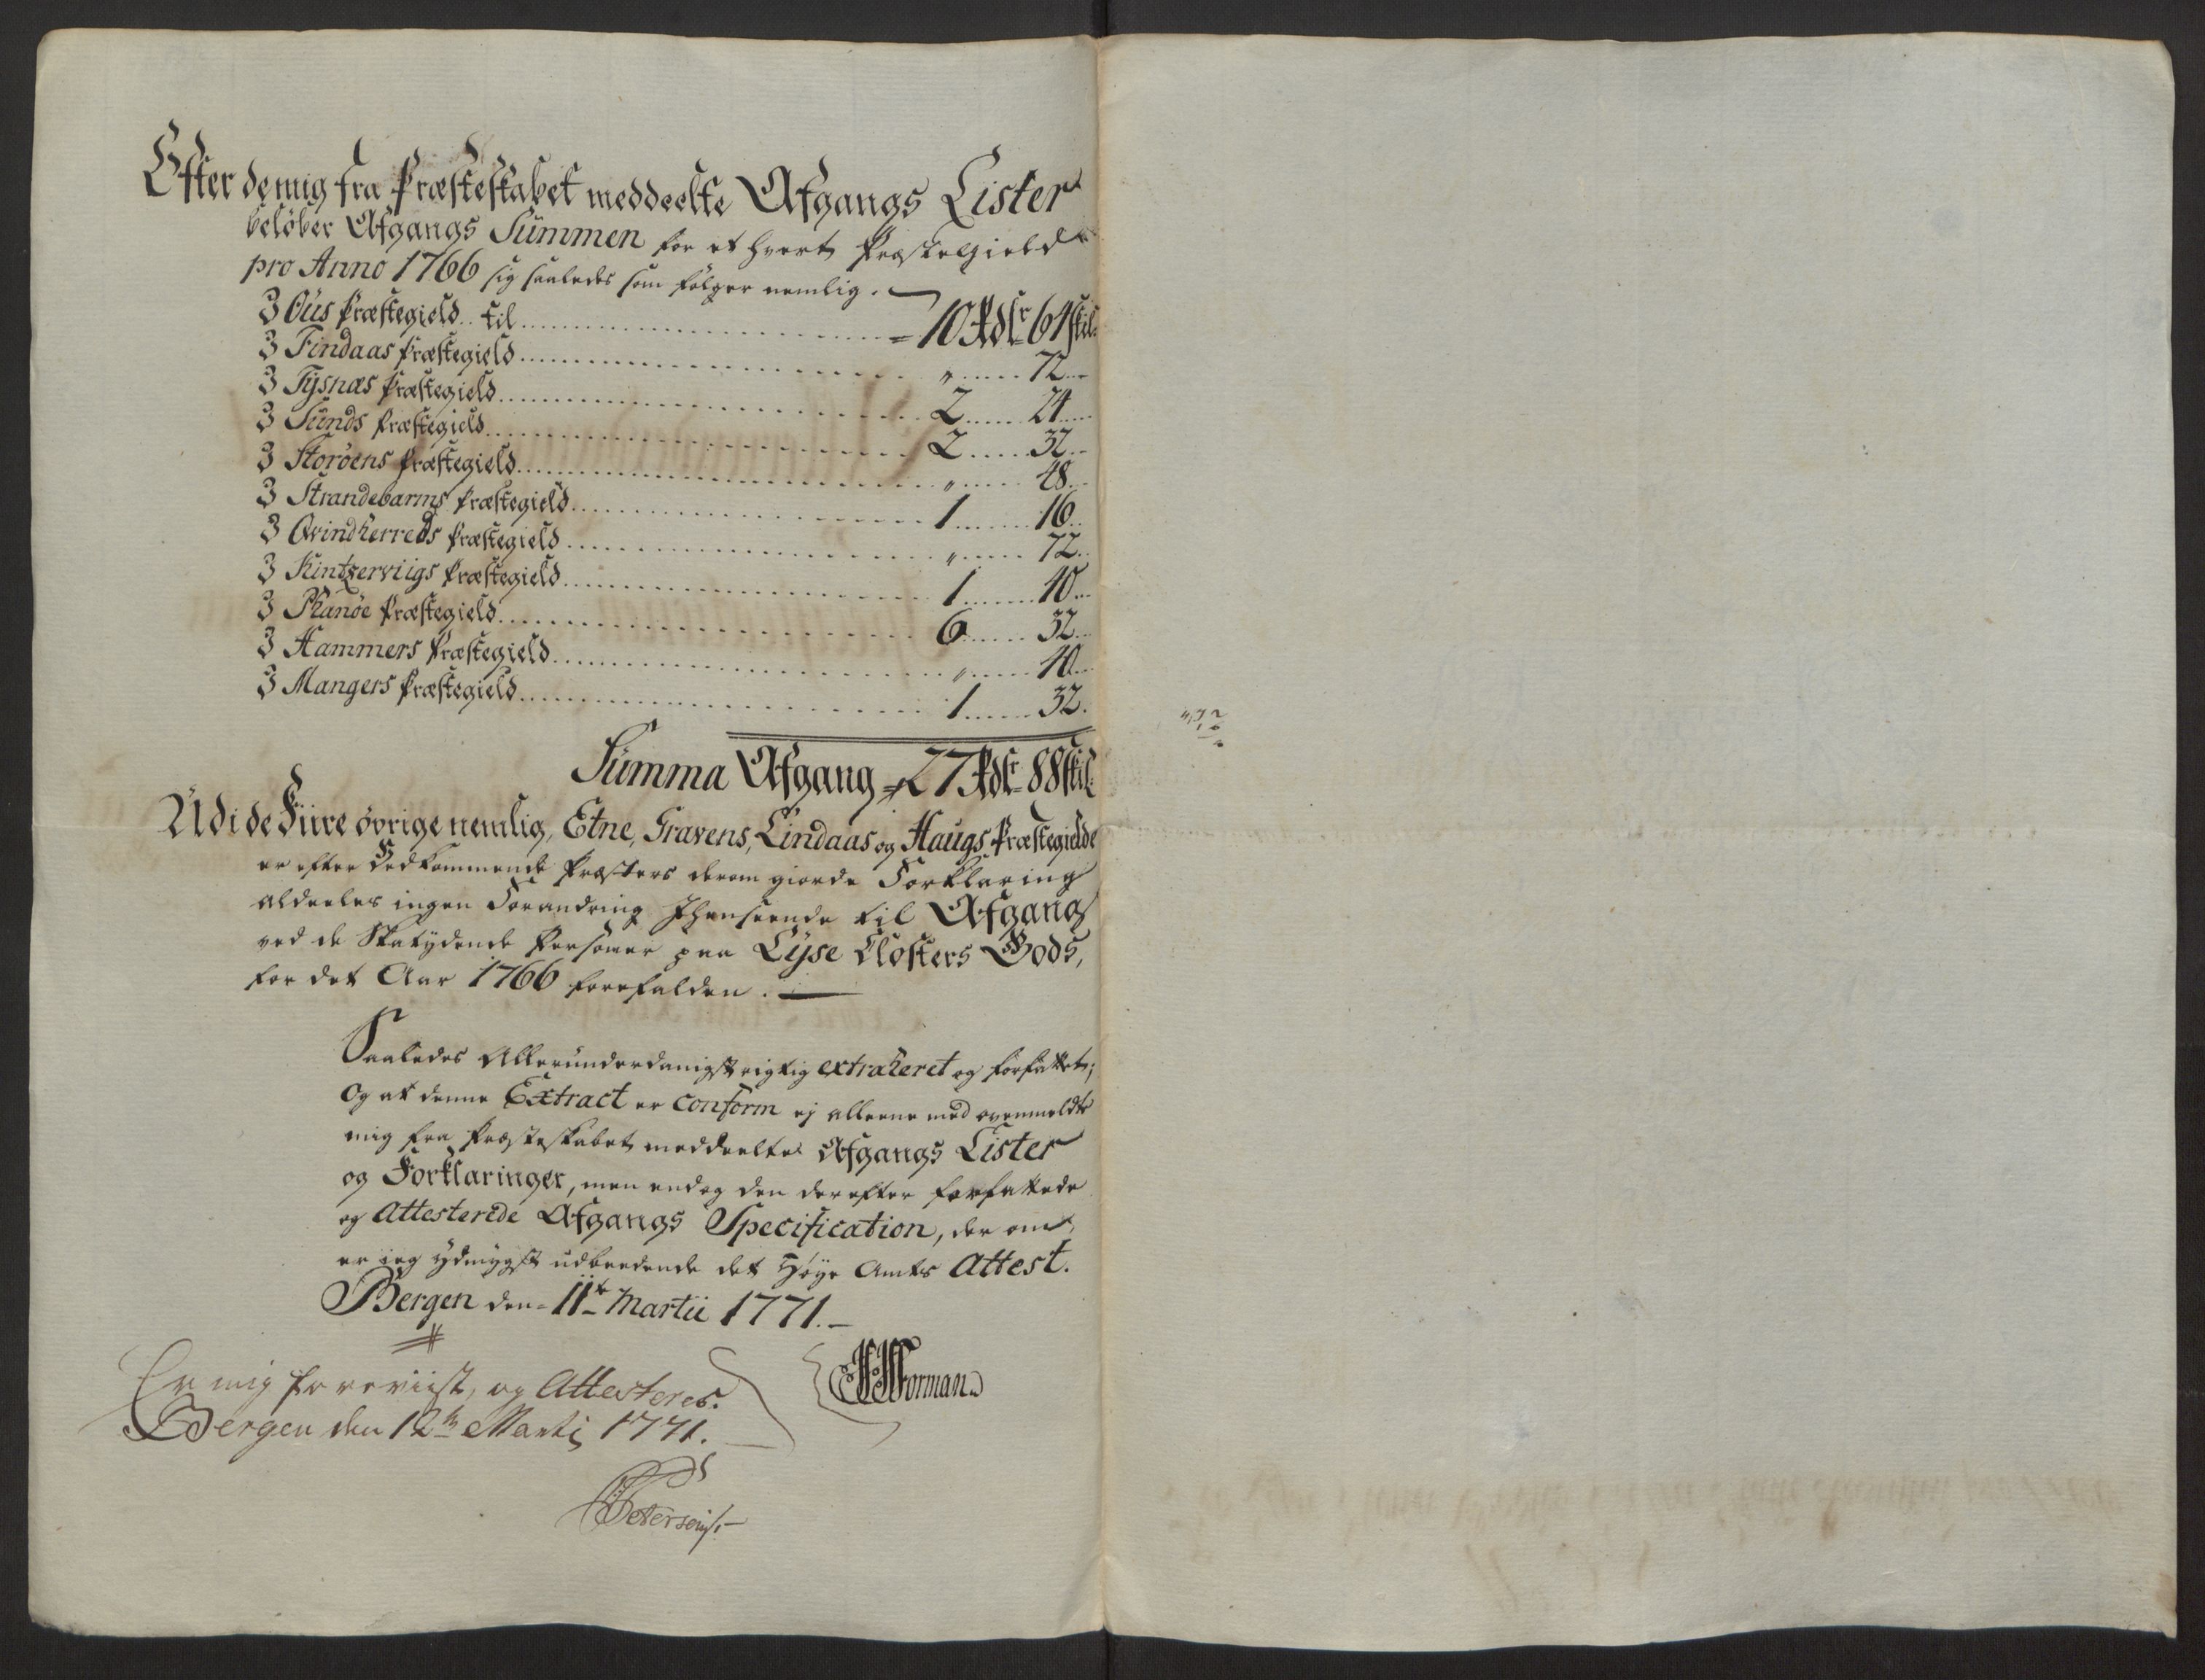 Efter de mig fra Præsteskabet meddeelte Afgangs Lister
beløber Afgangs Summen for et hvert Præstegield
pro Anno 1766 sig saaledes som følger nemlig.
I Ous Præstegield.. til = 10 Rdlr 64 skil:
I Findaas Præstegield " 72
I Tysnæs Præstegield 2 24
I Sunds Præstegield 2 32
I Storøens Præstegield " 48
I Strandebarms Præstegield 1 16
I Qvindherreds Præstegield " 72
I Kintzerviigs Præstegield 1 40
I Phanøe Præstegield 6 32
I Hammers Præstegield " 40
I Mangers Præstegield 1 32.
Summa Afgang = 27 Rdlr 88 skil:
Udi de Fiire øvrige nemlig, Etne, Gravens, Lindaas og Haugs Præstegielde
er efter Vedkommende Præsters derom giorde Forklaring
aldeeles ingen Forandring Ihenseende til Afgang
ved de Skatydende Persomer paa Lyse Closters Gods,
for det Aar 1766 forefalden.
Saaledes Allerunderdanigst rigtig extraheret og forfattet;
Og at denne Extract er conform ej alleene med ovenmeldte
mig fra Præsteskabet meddeelte Afgangs Lister
og Forklaringer, men endog den derefter forfattede
og Attesterede Afgangs Specification, der om
er jeg ydmygst udbeedende det Høye Amts Attest.
Bergen den 11te Martii 1771.
Er mig foreviist, og Attesteres.
Bergen den 12te Martij 1771.
Worman
Petersen